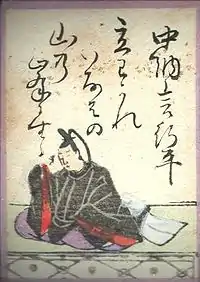 中納言行平
立わかれ
いなはの
山乃
峯